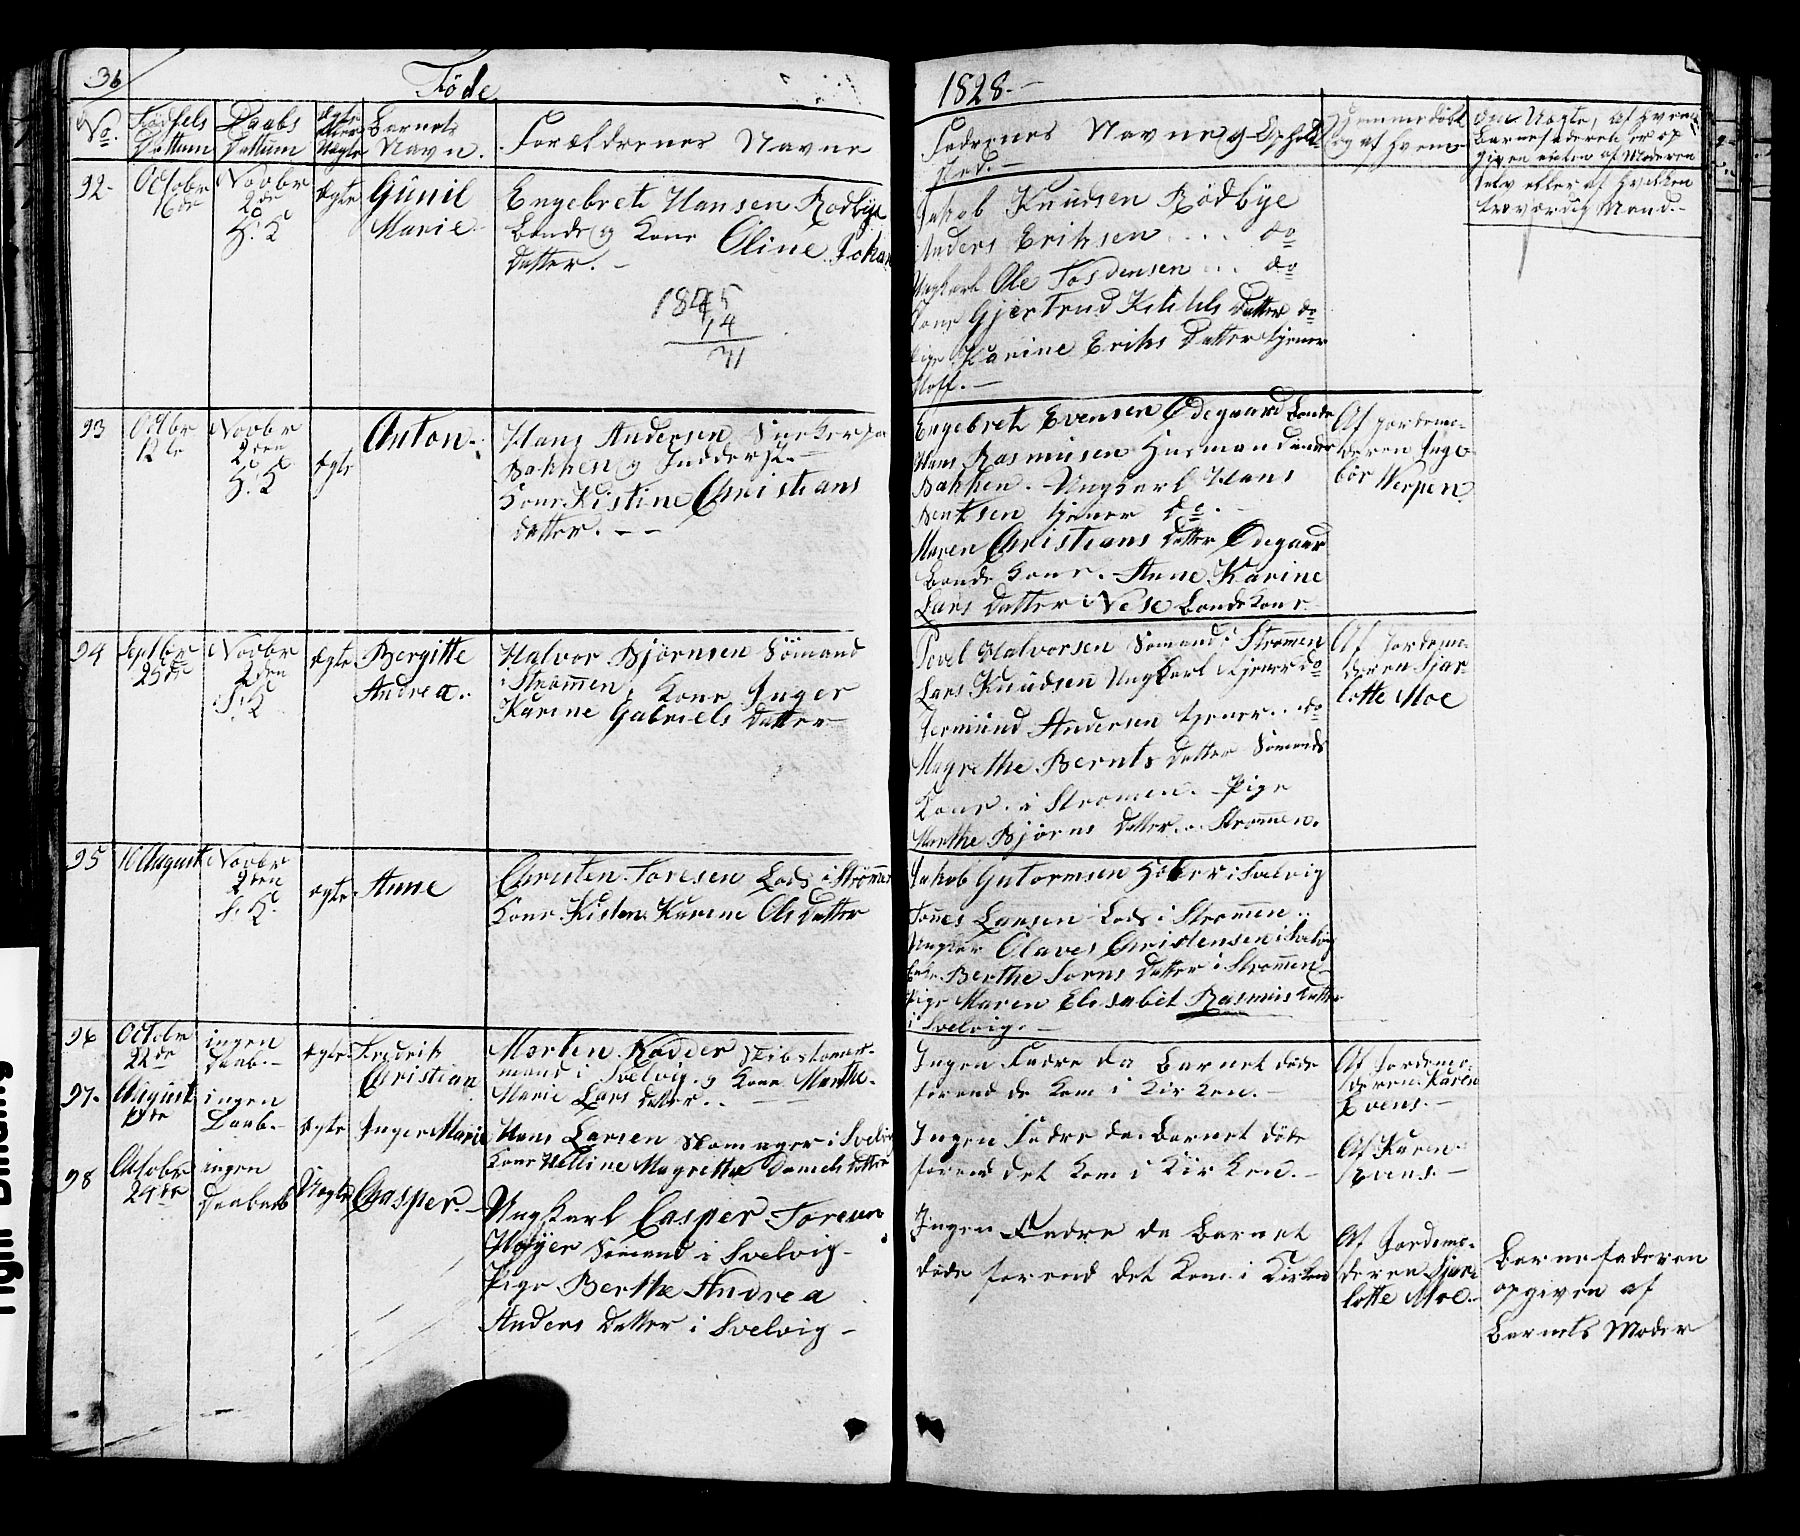 36
Føde
1828.-
No.
Fødsels
Dattum
Daabs
Dattum
Ægte
eller
Uægte
Barnets
Navn.
Forældrenes Navne
Fadrenes Navne og Ophold
sted.-
Hjemmedøbt
og af hvem
Om Uægte, af hvem
Barnefaderen er op
given enten af Moderen
selv eller af hvilken
troværdig Mand.-
92-
Octobr
16de
Novbr
2den
H.K
Ægte
Gunil
Marie.
Engebret Hansen Rødbye
Bonde og Kone Oline Johan
datter.-
1845
14
31
Jakob Knudsen Rødbye
Anders Eriksen .... do
Ungkarl Ole Tosdensen ... do
Kone Gjertrud Ketils Datter do
Pige Karine Eriks Datter tjener
Hoff.-
93
Octbr
12te
Novbr
2den
H.K
Ægte
Anton.
Hans Andersen
Bakken og
Kone Kistine Christians
datter.--
Engebret Evensen Ødegaard Bonde
Hans Rasmusen Husmand under
Bakken. - Ungkarl Hans
Bentsen tjener do.
Maren Christians Datter Ødegaard
Bonde Kone. - Anne Karine
Lars Datter Nese Bonde Kone.
Af Jordemo-
deren Inge-
bor Werpen
94
Septbr
25de
Novbr
2den
S.K
Ægte
Bergitte
Andrea.
Halvor Bjørnsen Sømand
i Strømmen, Kone Inger
Karine Gabriels Datter
Povel Halvorsen Sømand i Strømmen
Lars Knudsen Ungkarl tjener do
Andersen tjener.. do
Magrethe Bernts Datter Sømands
Kone. i Strømmen. Pige
Marthe Bjørns Datter.. Strømmen.
Af Jordemo-
deren Sjar-
lotte Moe
95
16 August
Novbr
2den
S.K.
Ægte
Anne
Christen Toresen Lods i Strømmen
Kone Kisten Karine Ols Datter
Jakob Gutormsen Høker i Svelvig
Lods i Strømmen..
Ungkar Olaves Christensen i Svelvig
Berthe Sorens Datter i Strømmen
Pige Maren Elisabet Rasmus Datter
i Svelvig.-
96
Octobr
22de
ingen
Daab.-
Ægte
Fredrik
Christian
Morten Rødder Skibstømmer-
mand i Svelvig og Kone Marthe
Marie Lars datter..
Ingen Fadre da Barnet døde
forend de kom i Kirken.-
Af Jordemo-
deren Karen
Evens.-
97.
August
ingen
Daab.-
Ægte
Inger Marie
Hans Larsen Skomager i Svelvig
Kone Helline Magrette Daniels Datter
Ingen Fadre da Barnet døde
forend det kom i Kirken.-
Af Karen
Evens.-
98
Octobr
24de
ingen
Daab
Uægte
Casper.-
Ungkarl Casper Toresen
Høyer Sømand i Svelvig-
Pige Berthe Andrea
Anders Datter i Svelvig-
Ingen Fadre da Barnet
døde forend det kom i Kirken
Af Jordemo-
deren Sjar-
lotte Moe.-
Barnefaderen
opgiven af
Barnets Moder